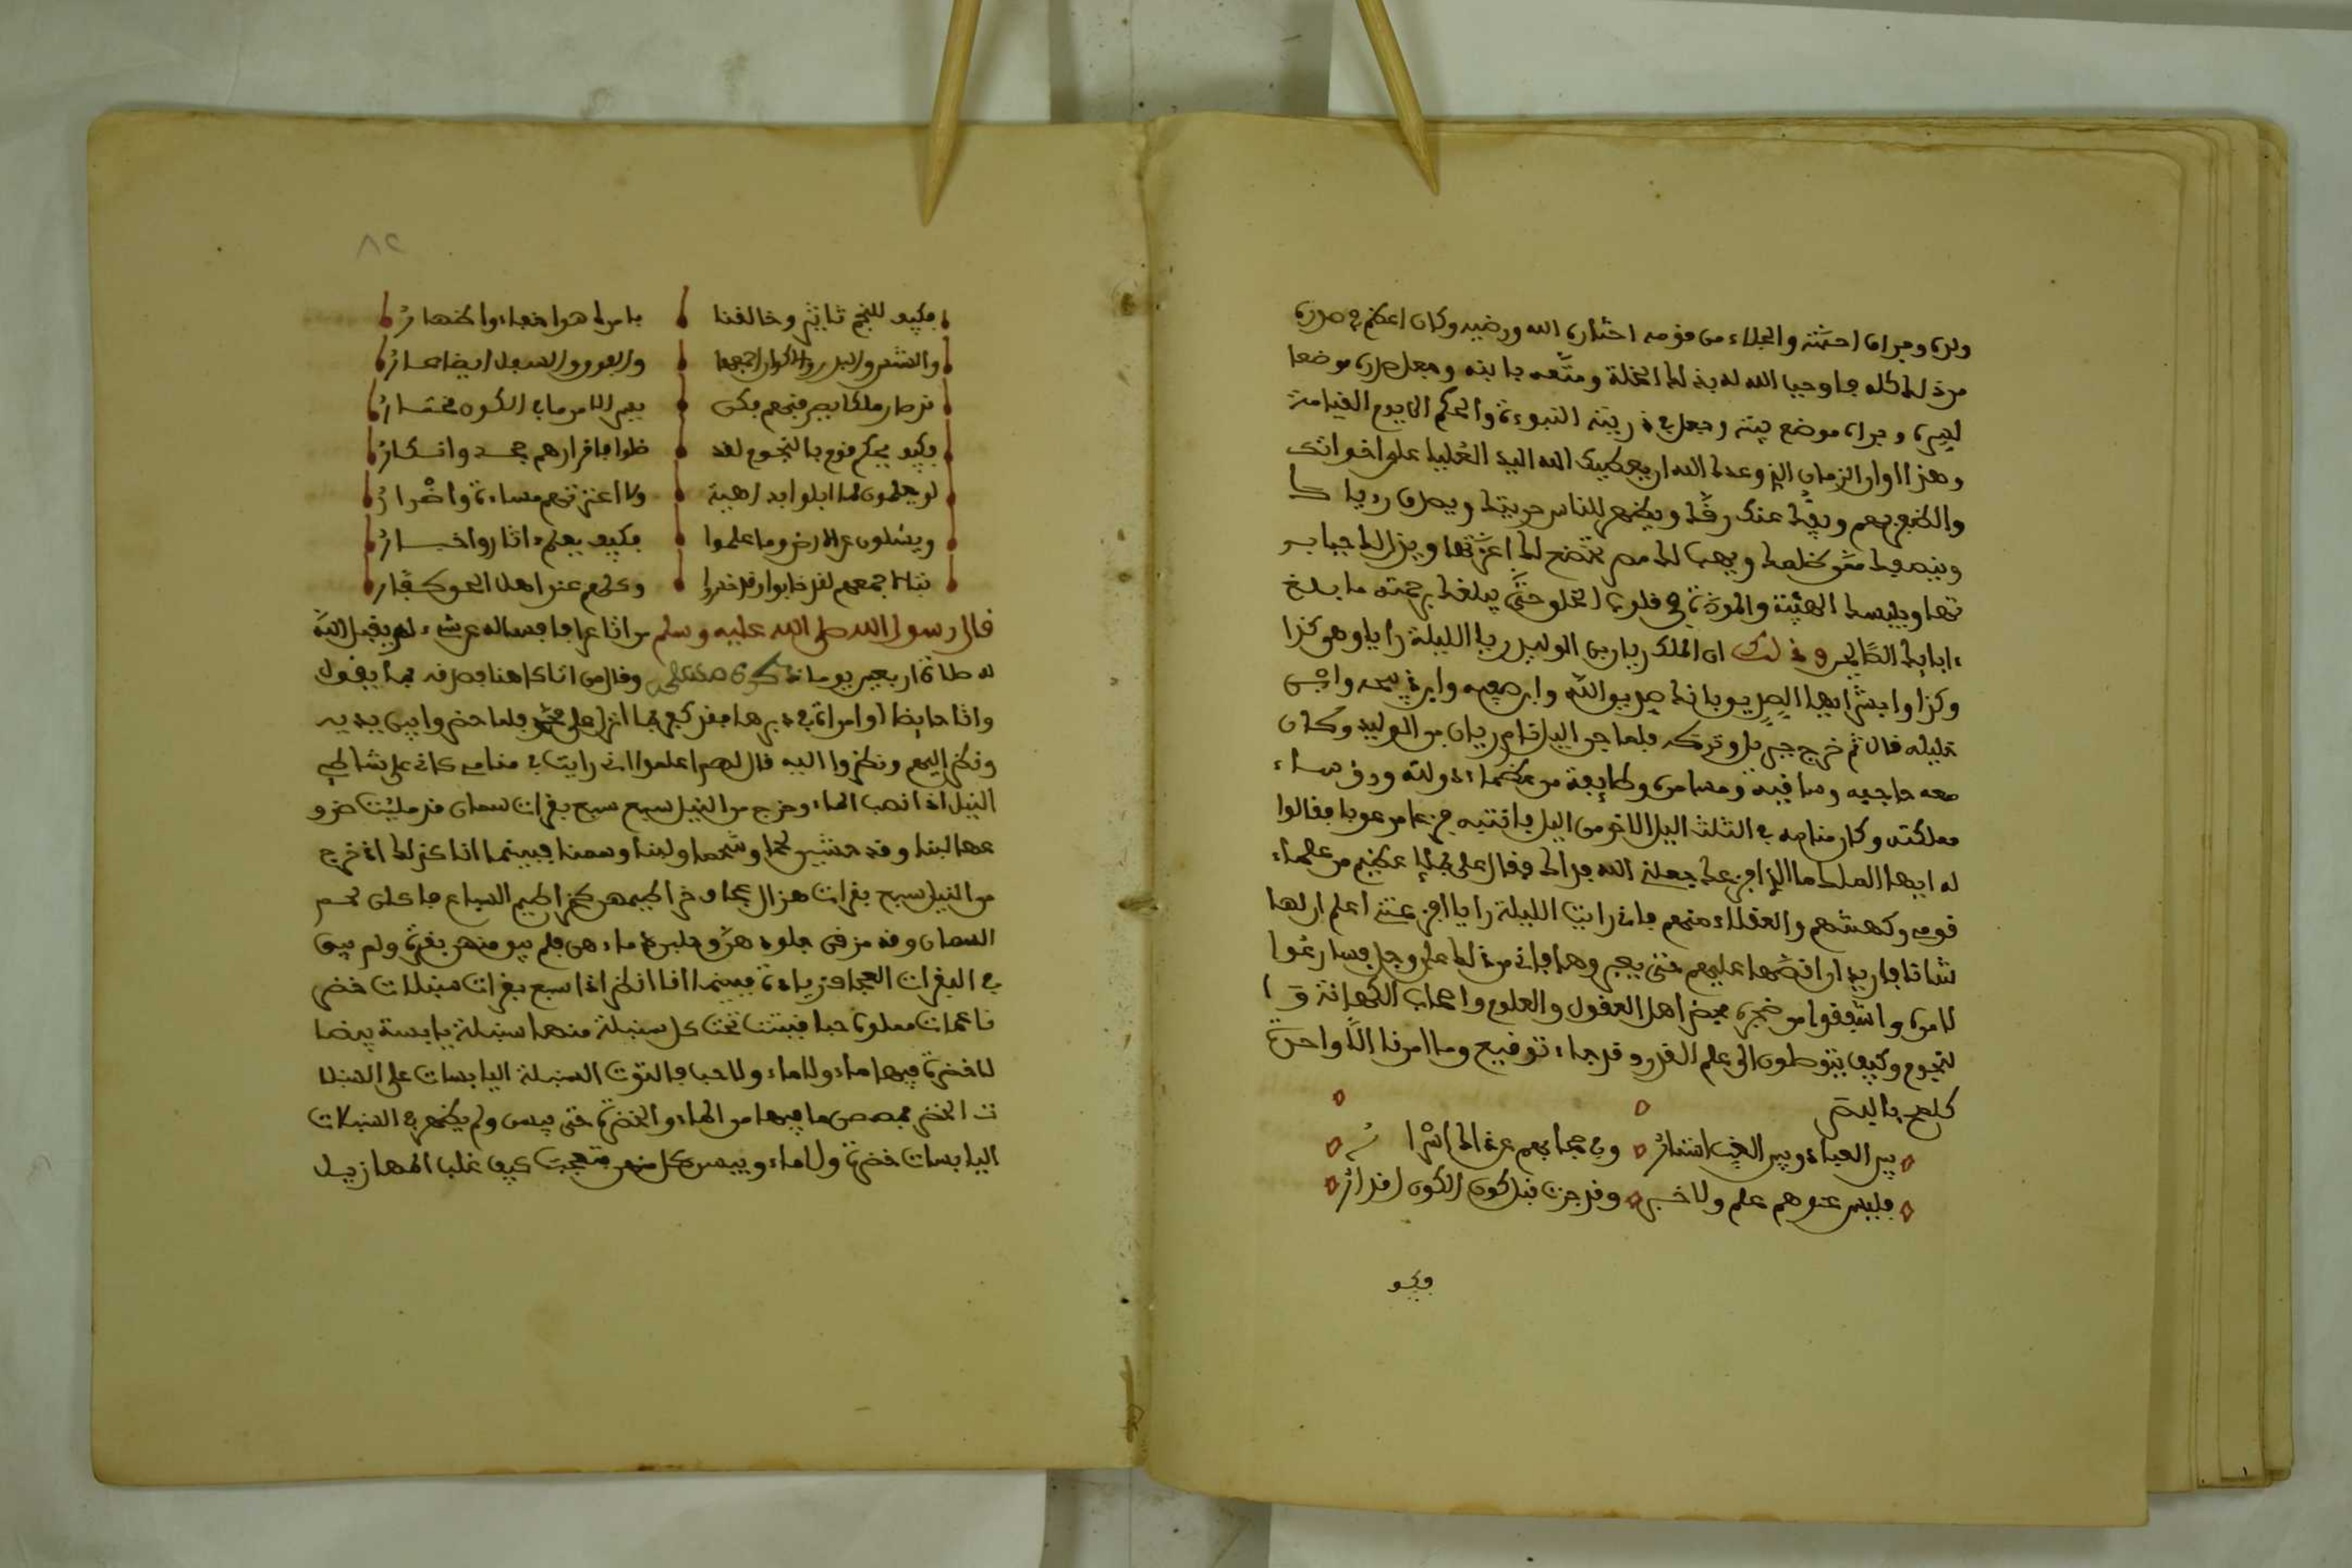 ولده وجرا احشته والجلاء من قومه اختاره الله ورضيه وكان اعظم في صدره
من ذلك كله جاوحبا الله له بذلك الخلة ومتّعه بابنه وجعل صدره موضعا
لسره وجراه موضع بيته وجعل في ذريته النبوءة والحكم الى يوم القيامة
وهذا اوان الزمان الذي وعدك الله ان يعطيك الله اليد العُليا على اخوانك
والظفر بهم ويفك عنك رقّك ويظهر للناس حريتك ويصدق روياك
وينصفك ممّن ظلمك ويهب لك مصر تخضع لك اعزّتها ويذل لك جبابر
تها ويلبسك الهيبة والمودة في قلوب الخلق حتّى يبلغك برحمته ما بلغ
ءاباءك الصّالحين وذلك ان الملك ريان بن الوليد ريا الليلة رايا وهو كذا
وكذا وابشر ايها الصديق بانك صديق الله وابن صفيه وابن ذبيحه وانيس
خليله قال ثم خرج جبريل وتركه فلما جن اليل نام ريان بن الوليد وكان
معه حاجبه وساقيه ومسامره وطايفة من عظماء دولته ورؤساء
مملكته وكان منامه في الثلث اليل الاخر من اليل فانتبه فزعا مرعوبا فقالوا
له ايها الملك ما الذي افزعك جعلنا الله فداك فقال علي بكل عظيم من علماء
قومه وكهنتهم والعقلاء منهم فاني رايت الليلة رايا افزعتني اعلم ان لها
شانا فاريد ان اقصّها عليهم حتى يعبروها فاني من ذلك على وجل فسارعُوا
لامره واشفقوا من ضجره فحضر اهل العقول والعلوم واصحاب الكهانة وا
لنجوم وكيف يتوصلون الى علم القدر وقد جاء توقيع وما امرنا الّا واحدة
كلمح بالبصر
بين العباد وبين الغيب استارُ وفي حجابهم عن ذاك اسرارُ
فليس عندهم علم ولا خبر وقد جرت قبل كون الكون اقدارُ
فكيف
٨٢
فكيف للنجم تاثير وخالقنا بامره هو اخفاء واظهارُ
والشمس والبدر والاكوان اجمعها والعرور والسعد ايضا
فكيف يحكم قوم بالنجوم لقد ضلوا فاقرارهم جحد وانكارُ
لو يعلمون لما ابلوا بداهية ولا اعترتهم مساءة واضْرارُ
ويسئلون عن الارض وما علموا فكيف يعلم ءاثار واخبارُ
تبّا لاجمعهم لقد خابوا وقد خسروا وكلهم عند اهل الحق كفّارُ
قال رسول الله صلى الله عليه وسلم من اتا عرافا فساله عن شيء لم يقبل اللّه
له صلاة اربعين يوما وقال من اتى كاهنا فصدقه بما يقول
واتا حايضا او امراة في دبرها فقد كفر بما انزل على محمّد فلما حضروا بين يديه
ونظر اليهم ونظروا اليه قال لهم اعلموا اني رايت في منامي كاني على شاطئ
النيل اذا نصب الماء وخرج من النيل سبع سبع بقرات سمان قد مليت ضرو
عها لبنا وقد حشين لحما وشحما ولبنا وسمنا فبينما انا كذلك اذ خرج
من النيل سبع بقرات هزال عجاف خراطيمهن كخراطيم السباع فاكلن لحم
السمان وقد مزقن جلودهنّ وجلبن دماءهن فلم يبق منهن بقرة ولم يبق
في البقرات العجاف زيادة فبينما انا انظر اذا سبع بقرات سنبلات خضر
ناعمات مملوة حبا فنبتت تحت كل سنبلة منها سنبلة يابسة بيضا
لا خضرة فيها ولا ماء ولا حبا فالتوت السنبلة اليابسات على السنبلا
ت الخضر فمصصن ما فيها من الماء والخضرة حتى يبسن ولم يظهر في السنبلات
اليابسات خضرة ولا ماء ويبسن كل منهن فتعجبت كيف غلب المهازيل